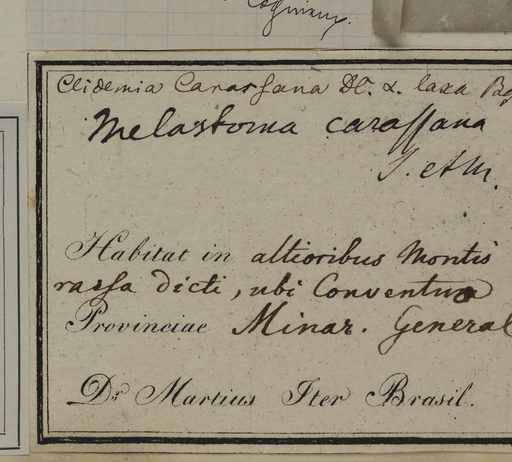 Cogniaux.
Clidemia Carassana DC. α. laxa
Melastoma carassana
Habitat in altioribus Montis
rassa dicti, ubi Conventus
Provinciae Minar. General
Dr. Martius Iter Brasil.